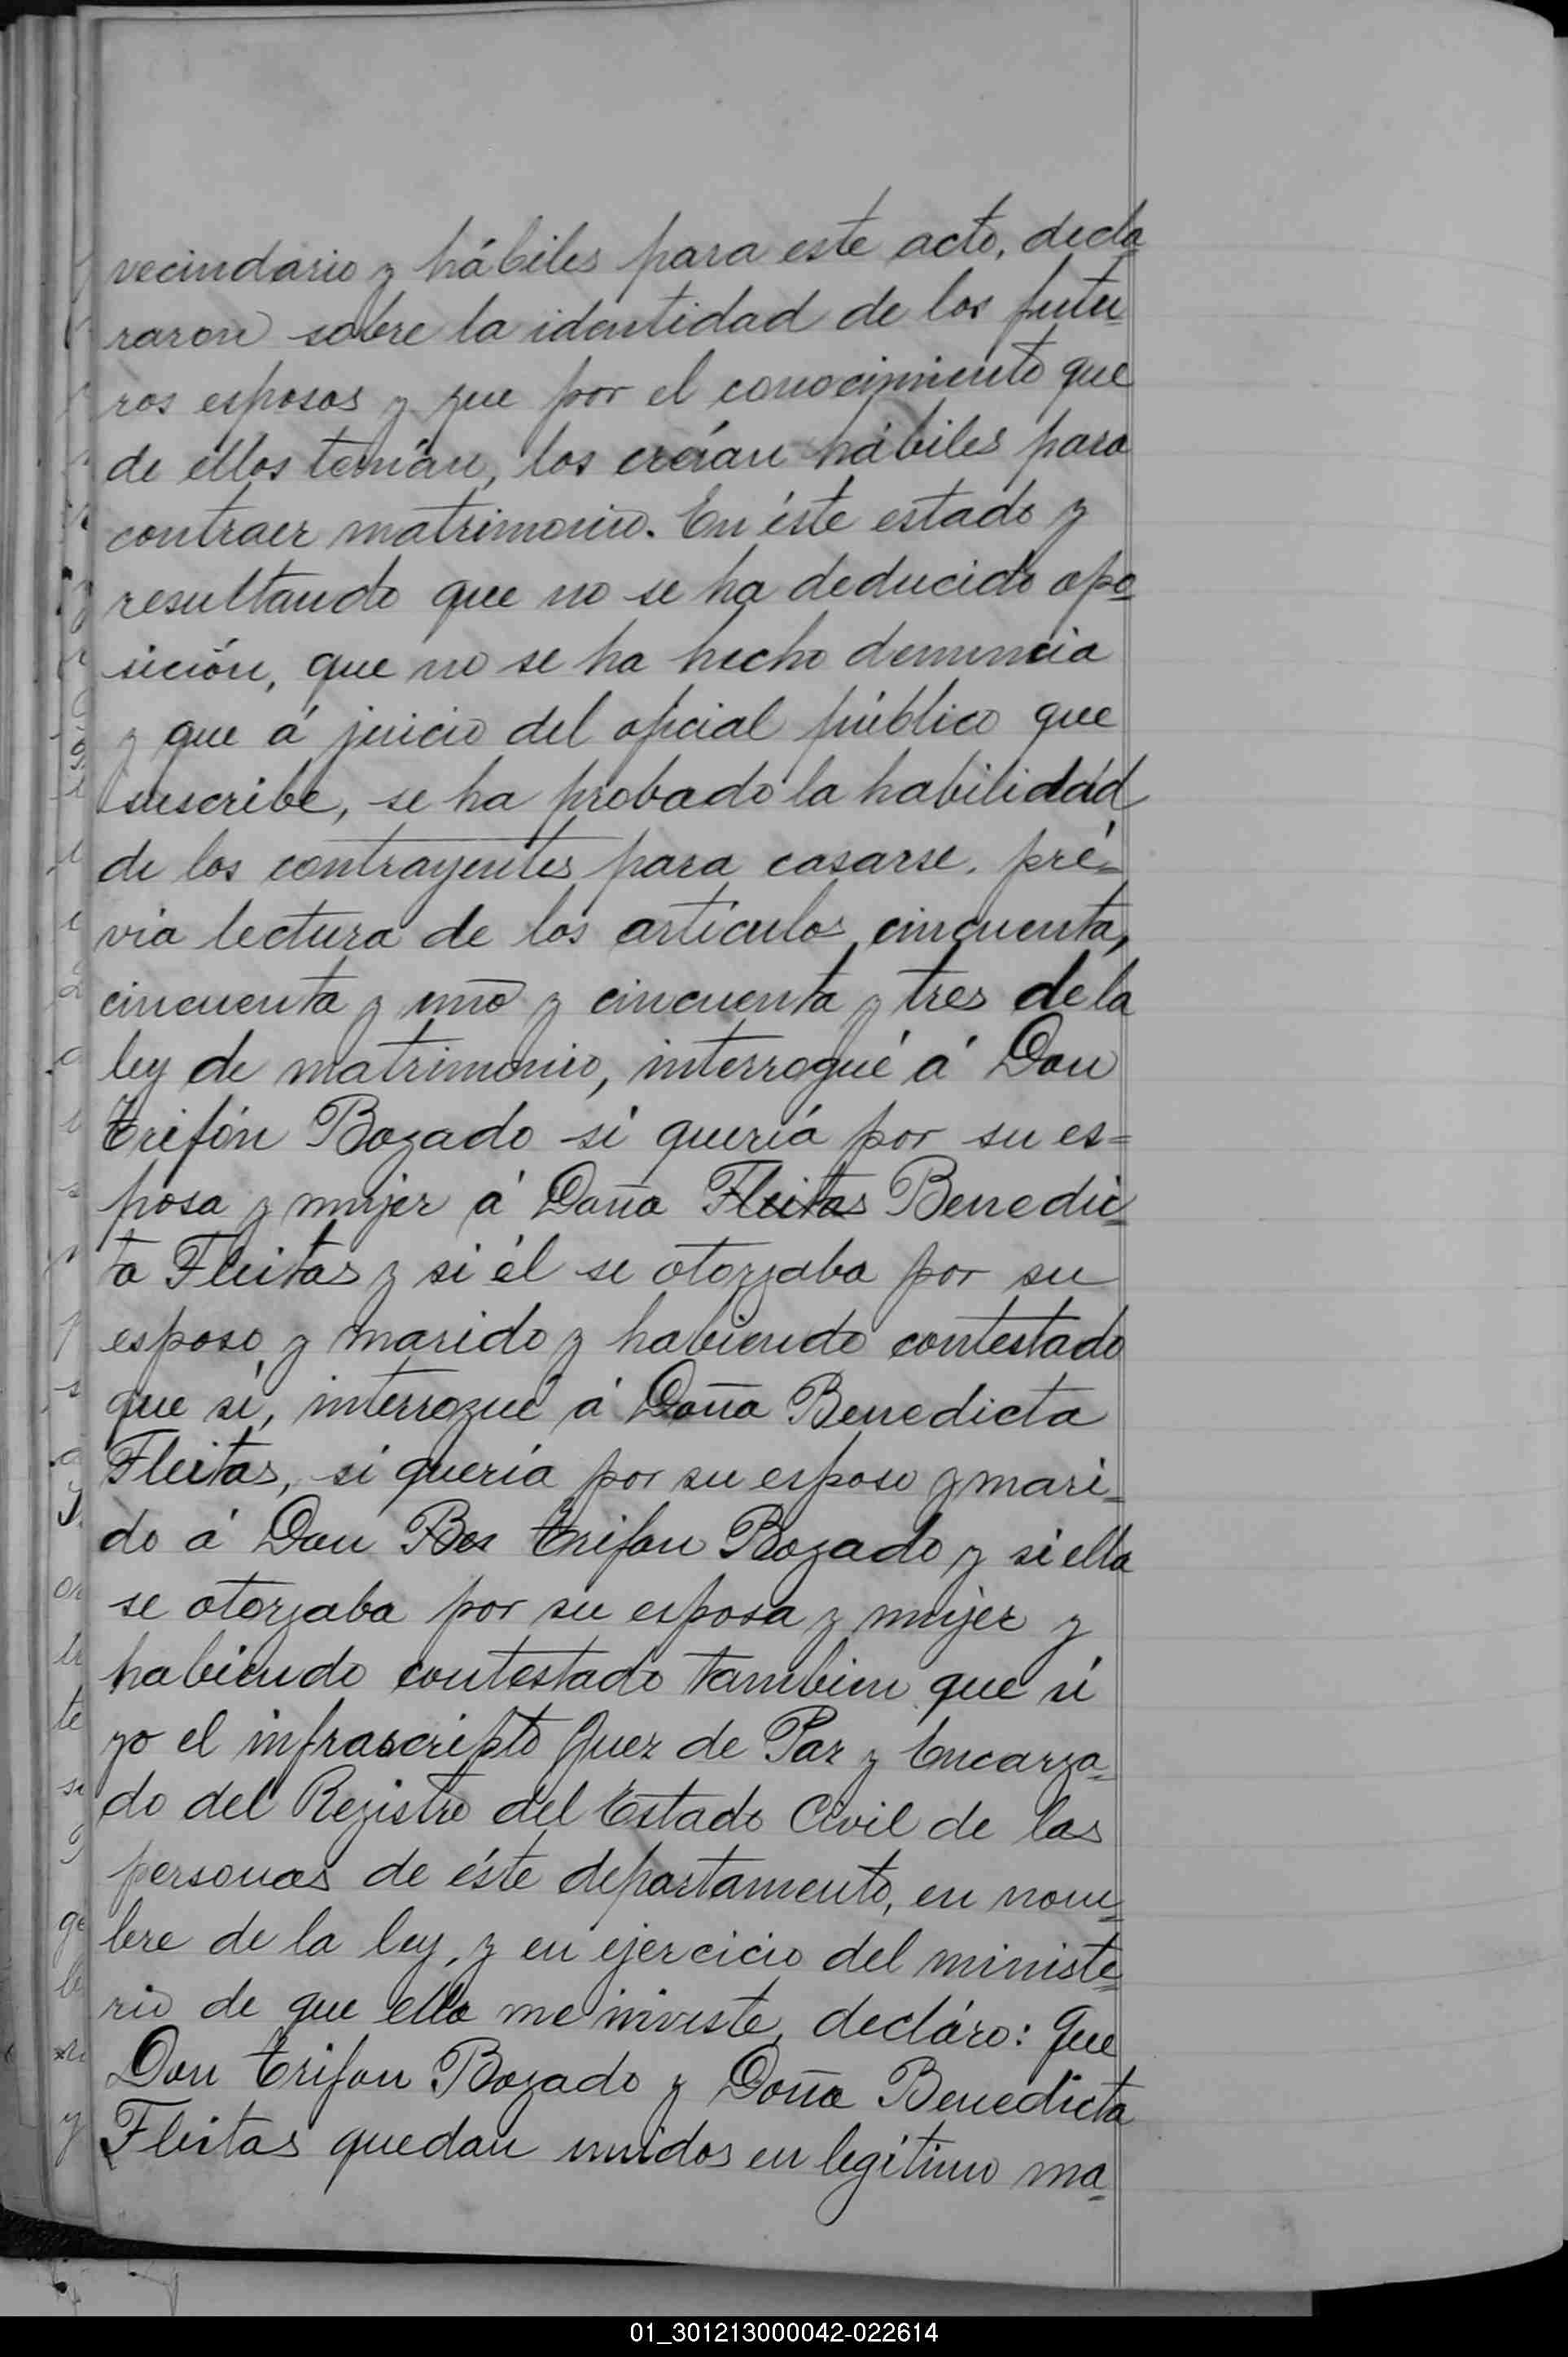 vecindario y hábiles para este acto, decla=
raron sobre la identidad de los futu=
ros esposos y que por el conocimiento que
de ellos tenían, los creían hábiles para
contraer matrimonio. En éste estado y
resultando que no se ha deducido opo=
sición, que no se ha hecho denuncia
y que á juicio del oficial público que
suscribe, se ha probado la habilidad
de los contrayentes para casarse, pré=
via lectura de los artículos cincuenta,
cincuenta y uno y cincuenta y tres de la
ley de matrimonio, interrogué á Don
Trifón Bozado si quería por su es=
posa y mujer á Doña Fleitas Benedic=
ta Fleitas y si él se otorgaba por su
esposo y marido y habiendo contestado
que sí, interrogué á Doña Benedicta
Fleitas, si quería por su esposo y mari=
do á Don Bos Trifon Bozado y si ella
se otorgaba por su esposa y mujer y
habiendo contestado tambien que sí
yo el infrascripto Juez de Paz y Encarga=
do del Registro del Estado Civil de las
personas de éste departamento, en nom=
bre de la ley, y en ejercicio del ministe=
rio de que ella me inviste, decláro: Que
Don Trifon Bozado y Doña Benedicta
Fleitas quedan unidos en legítimo ma=
01_301213000042-022614